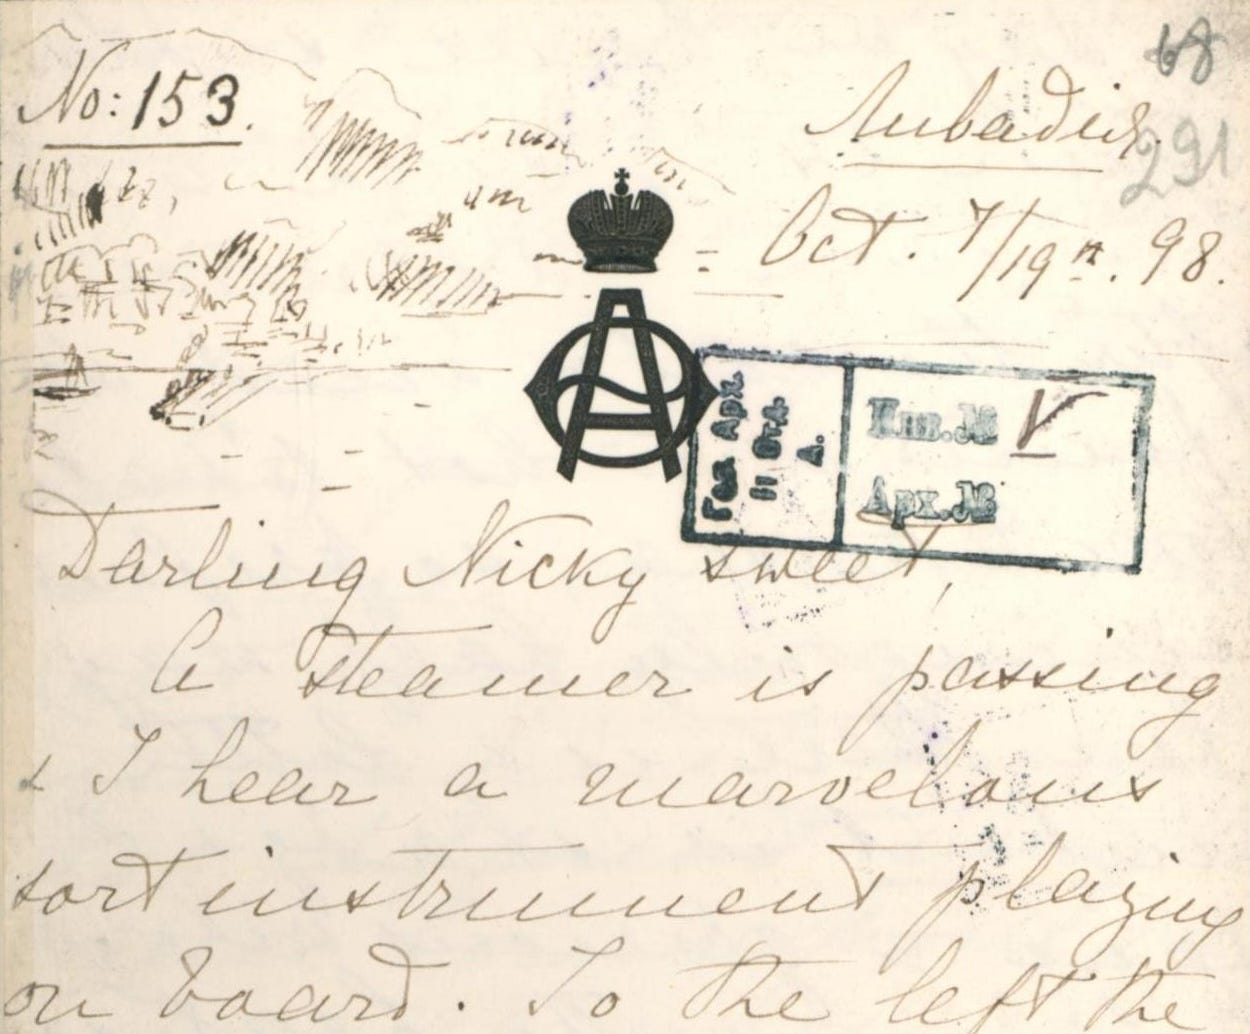 No: 153.
68
Ливадия.
291
Oct. 7/19th. 98.
Гос. Арх.
II Отд.
А.
Инв. № V
Арх. №
Darling Nicky sweet,
A steamer is passing
& I hear a marvelous
sort instrument playing
on board. To the left the